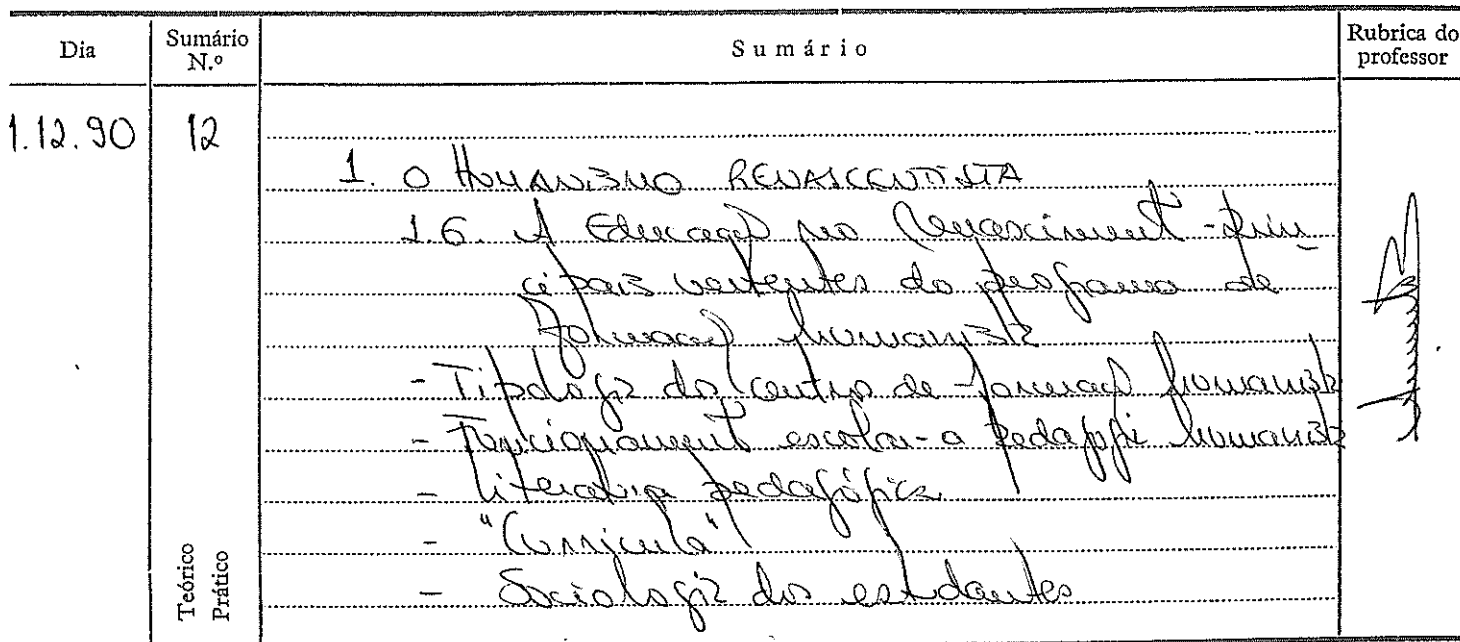 Dia Sumário N.º Sumário Rubrica do professor
1.12.90 12
1. O HUMANISMO RENASCENTISTA
1.6. A Educação no Renascimento - prin
cipais vertentes do programa de
formação humanista
- Tipologia dos centros de formação humanista
- Funcionamento escolar - a pedagogia humanista
- Literatura pedagógica
- "Curricula"
- Sociologia dos estudantes
Teórico
Prático